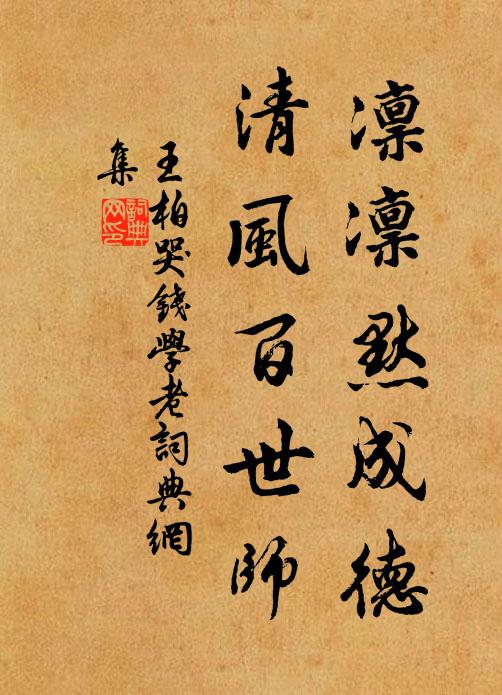 凛凛默成德
清風百世師
王柏哭錢學老詞典網
集
詞典網印